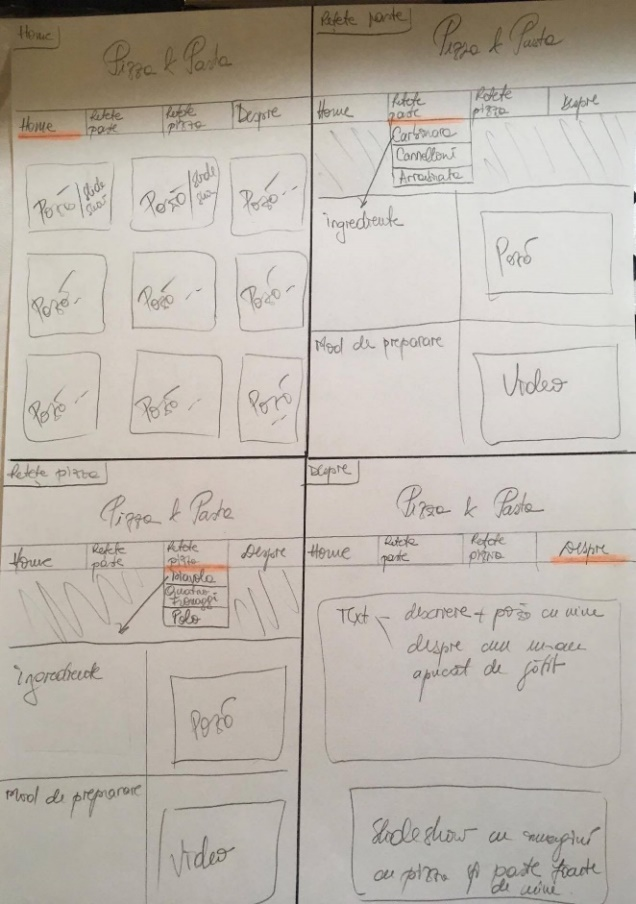 Home
Pizza & Pasta
Home
Rețete
paste
Rețete
pizza
Despre
Poză
Slide
Poză
Slide
Poză
Poză
Poză
Poză
Poză
Poză
Poză
Rețete paste
Pizza & Pasta
Home
Rețete
paste
Rețete
pizza
Despre
Carbonara
Cannelloni
Arrabiata
ingrediente
Poză
Mod de preparare
Video
Rețete pizza
Pizza & Pasta
Home
Rețete
paste
Rețete
pizza
Despre
Diavola
Quatro
Fromaggi
Polo
ingrediente
Poză
Mod de preparare
Video
Despre
Pizza & Pasta
Home
Rețete
paste
Rețete
pizza
Despre
Text - descriere + poză cu mine
despre cum m-am
apucat de gătit
Slideshow cu imagini
cu pizza și paste foarte
de mine